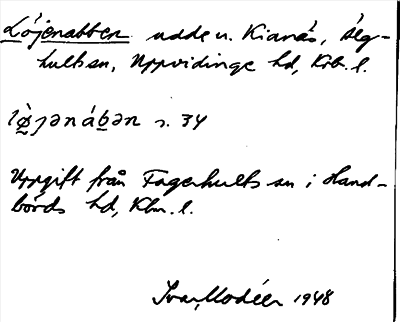 Löjenabben udde v. Kianäs, Älg-
hults sn, Uppvidinge hd, Krb. l.
lø̀jənábən s. 34
Uppgift från Fagerhults sn i Hand-
börds hd, Klm. l.
Ivar Modéer 1948